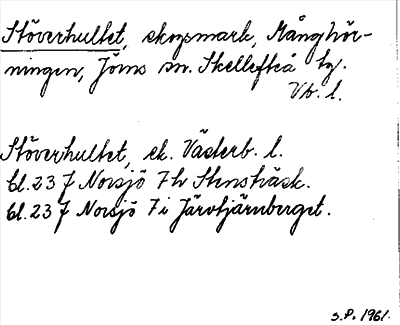 Stöverhultet, skogsmark, Månghör-
ningen, Jörns sn. Skellefteå tg.
Vb. l.
Stöverhultet, sk. Västerb. l.
bl. 23 J Norsjö 7h Stensträsk.
bl. 23 J Norsjö 7i Järvtjärnberget.
S.P. 1961.